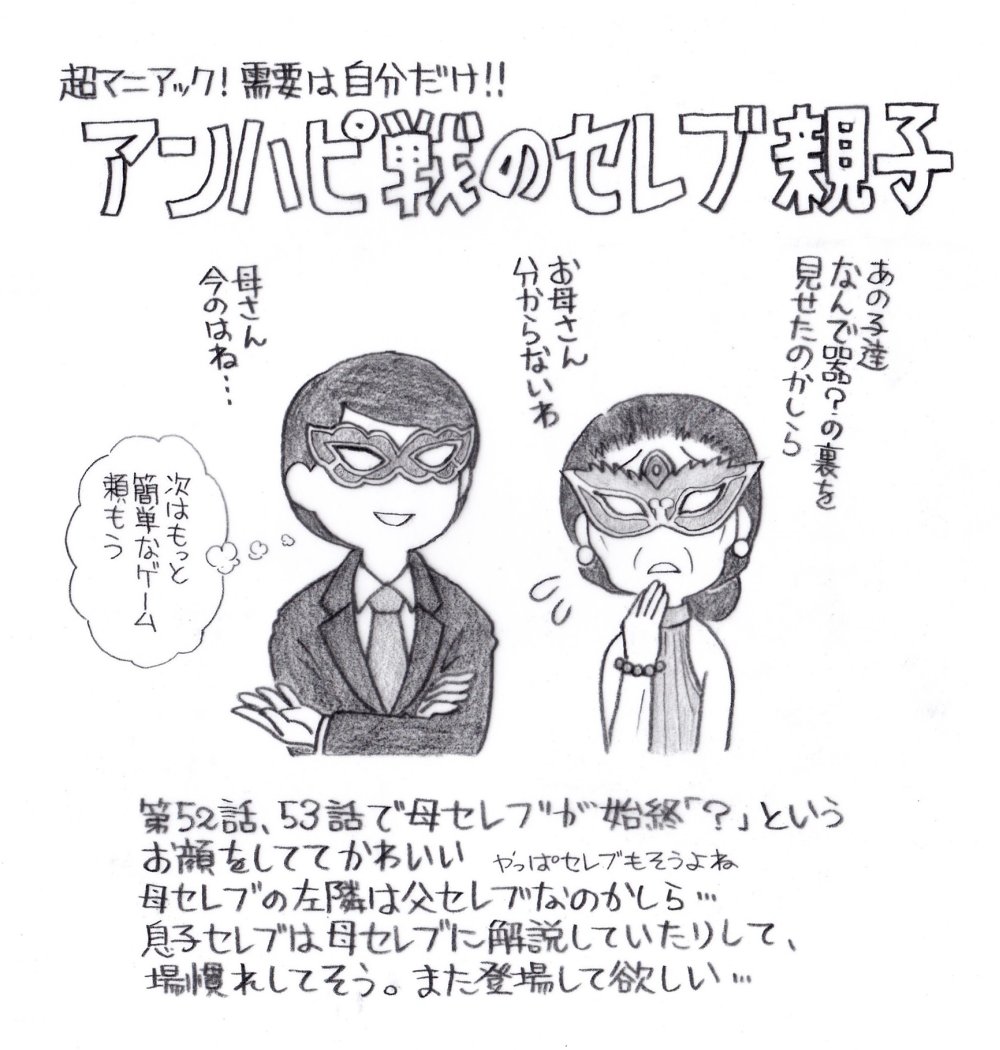 超マニアック！需要は自分だけ!!
アンハピ戦のセレブ親子
あの子達
なんで器？の裏を
見せたのかしら
お母さん
分からないわ
母さん
今のはね…
次はもっと
簡単なゲーム
頼もう
第52話、53話で母セレブが始終「？」という
お顔をしててかわいい やっぱセレブもそうよね
母セレブの左隣は父セレブなのかしら…
息子セレブは母セレブに解説していたりして、
場慣れしてそう。また登場して欲しい…